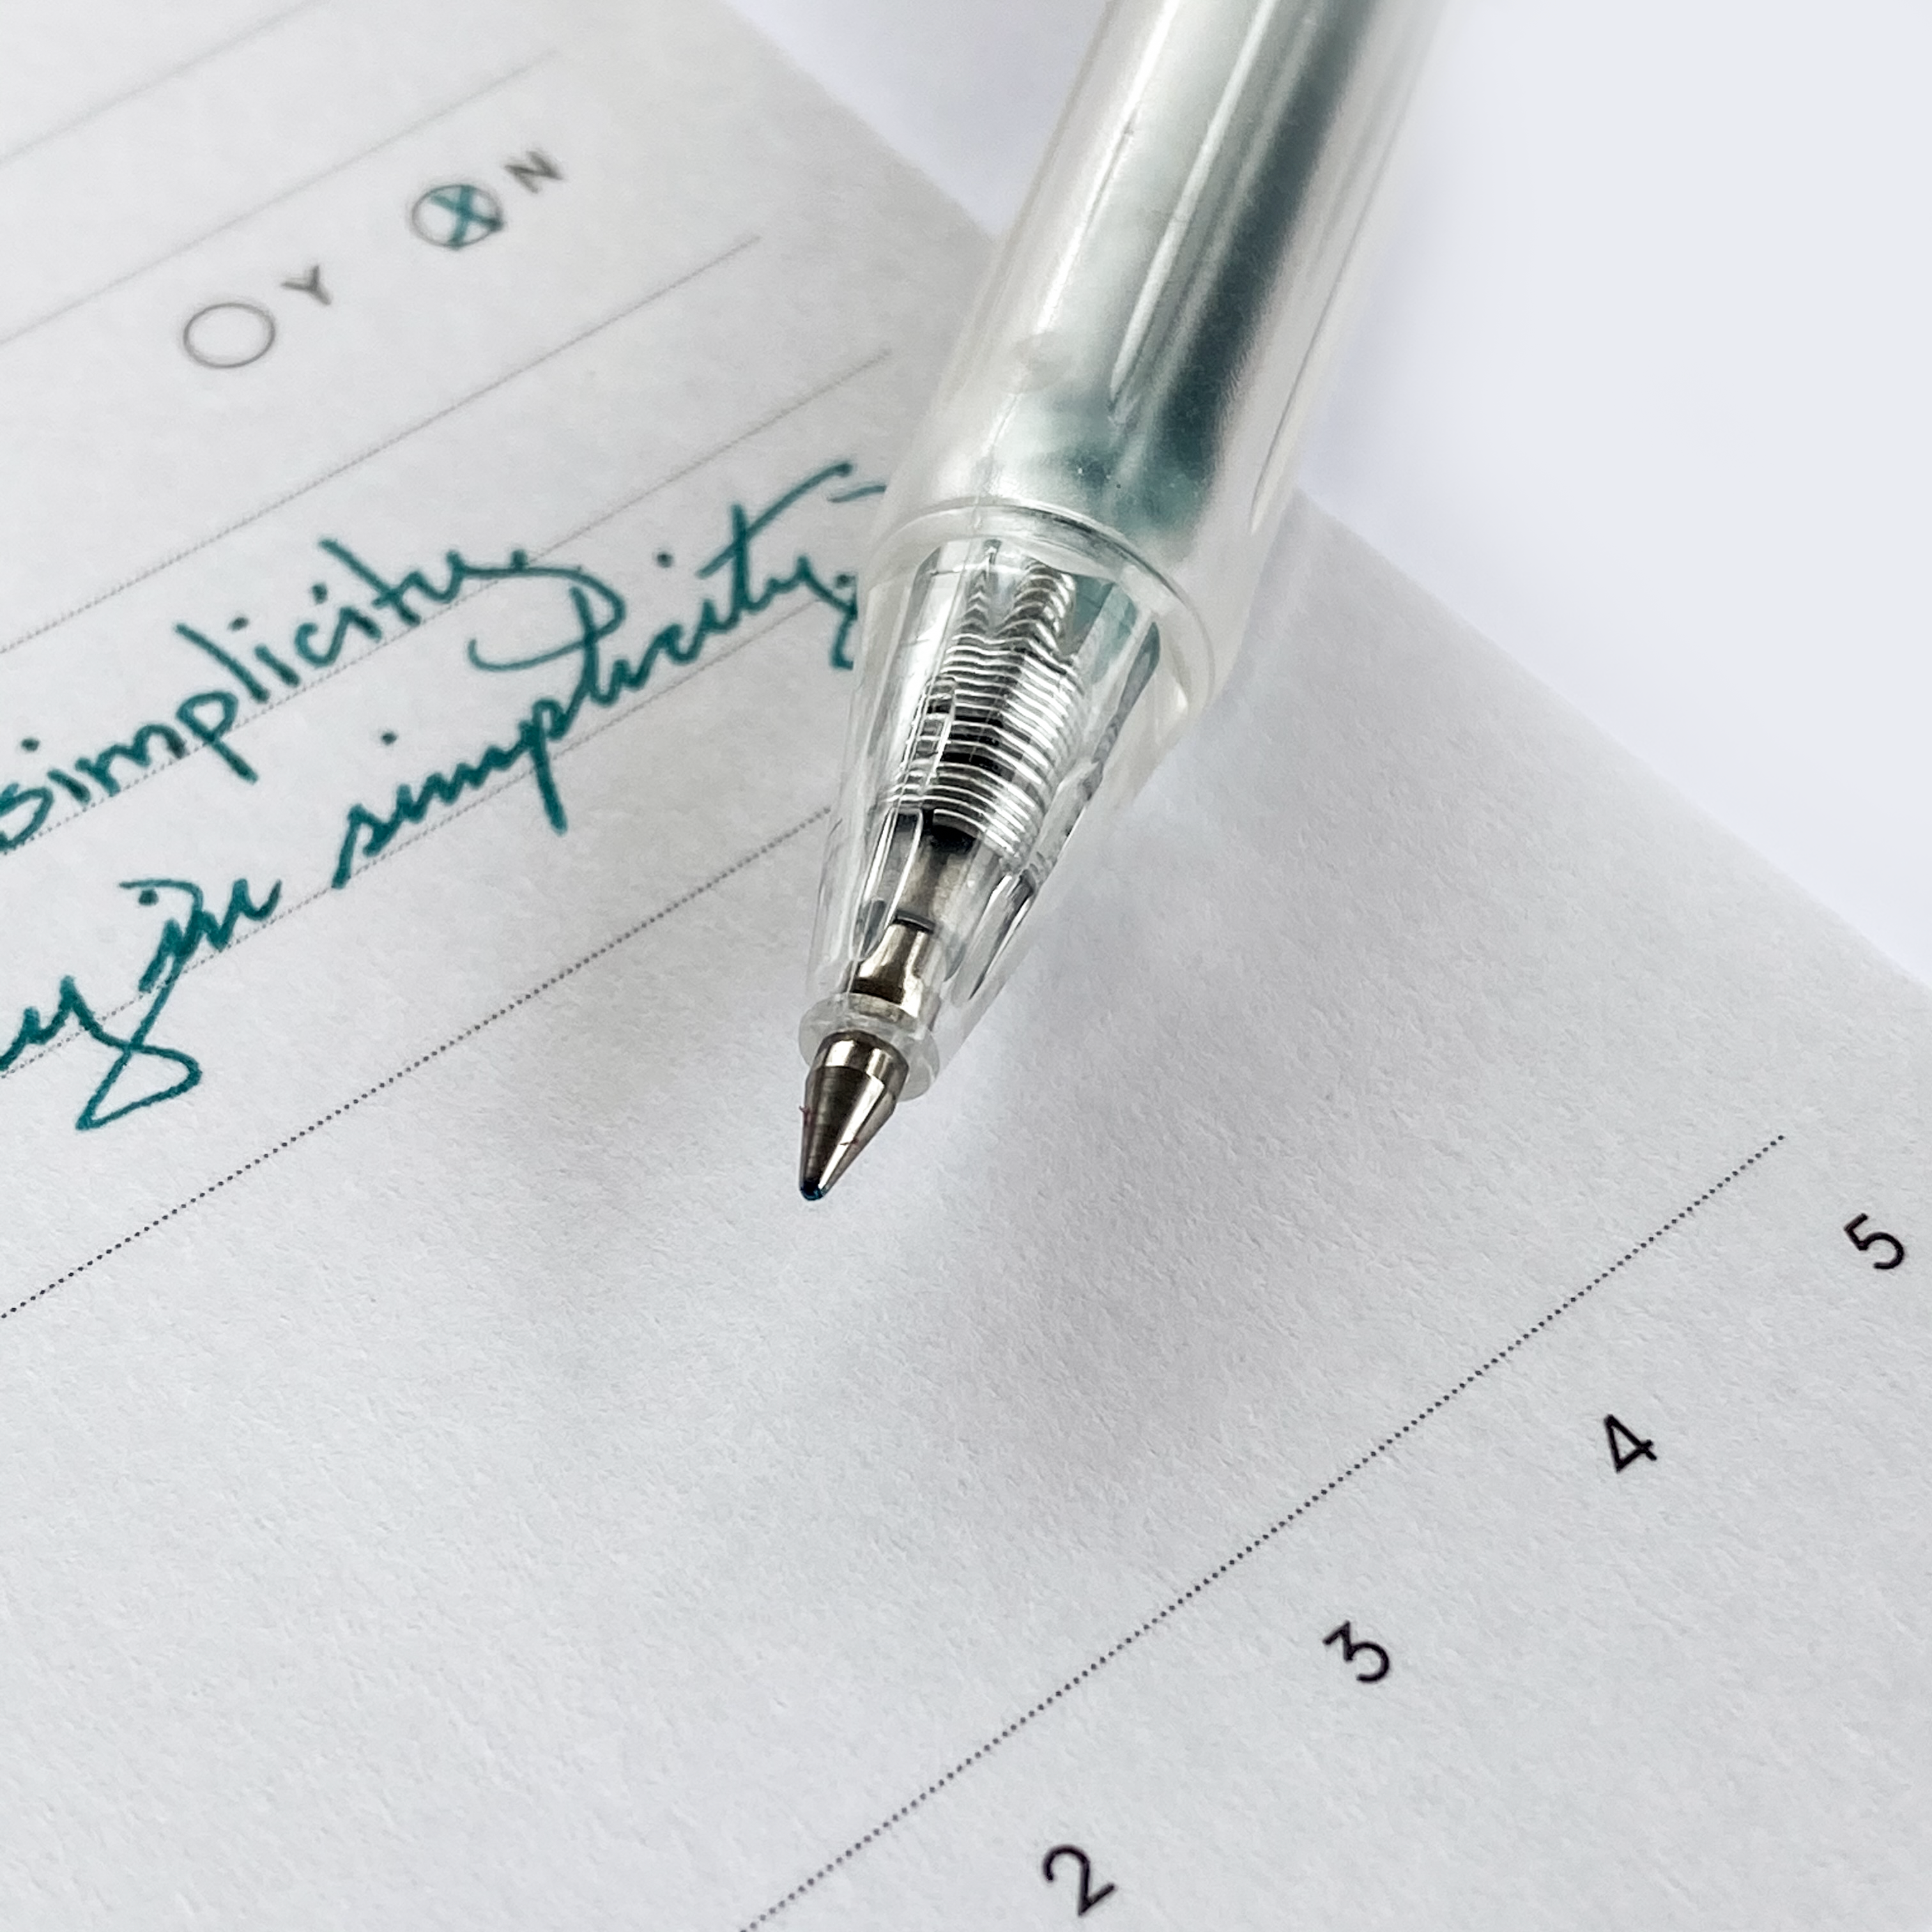 Y N
simplicity
in simplicity
2 3 4 5